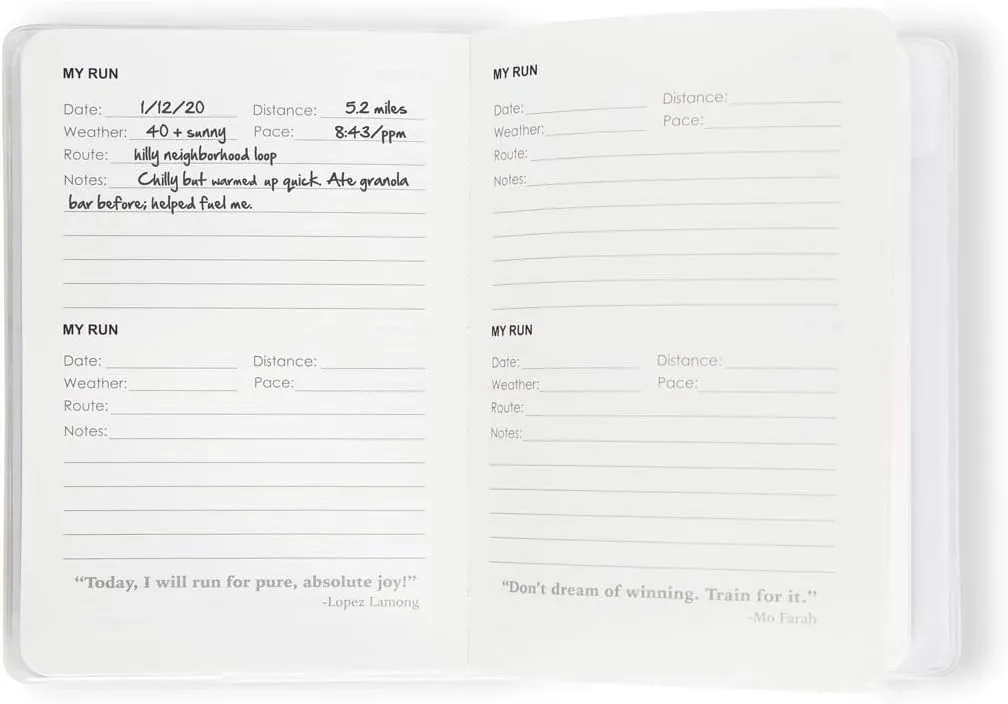 MY RUN
Date: 1/12/20 Distance: 5.2 miles
Weather: 40 + sunny Pace: 8:43/ppm
Route: hilly neighborhood loop
Notes: Chilly but warmed up quick. Ate granola
bar before; helped fuel me.
MY RUN
Date: Distance:
Weather: Pace:
Route:
Notes:
“Today, I will run for pure, absolute joy!”
-Lopez Lamong
MY RUN
Date: Distance:
Weather: Pace:
Route:
Notes:
MY RUN
Date: Distance:
Weather: Pace:
Route:
Notes:
“Don't dream of winning. Train for it.”
-Mo Farah